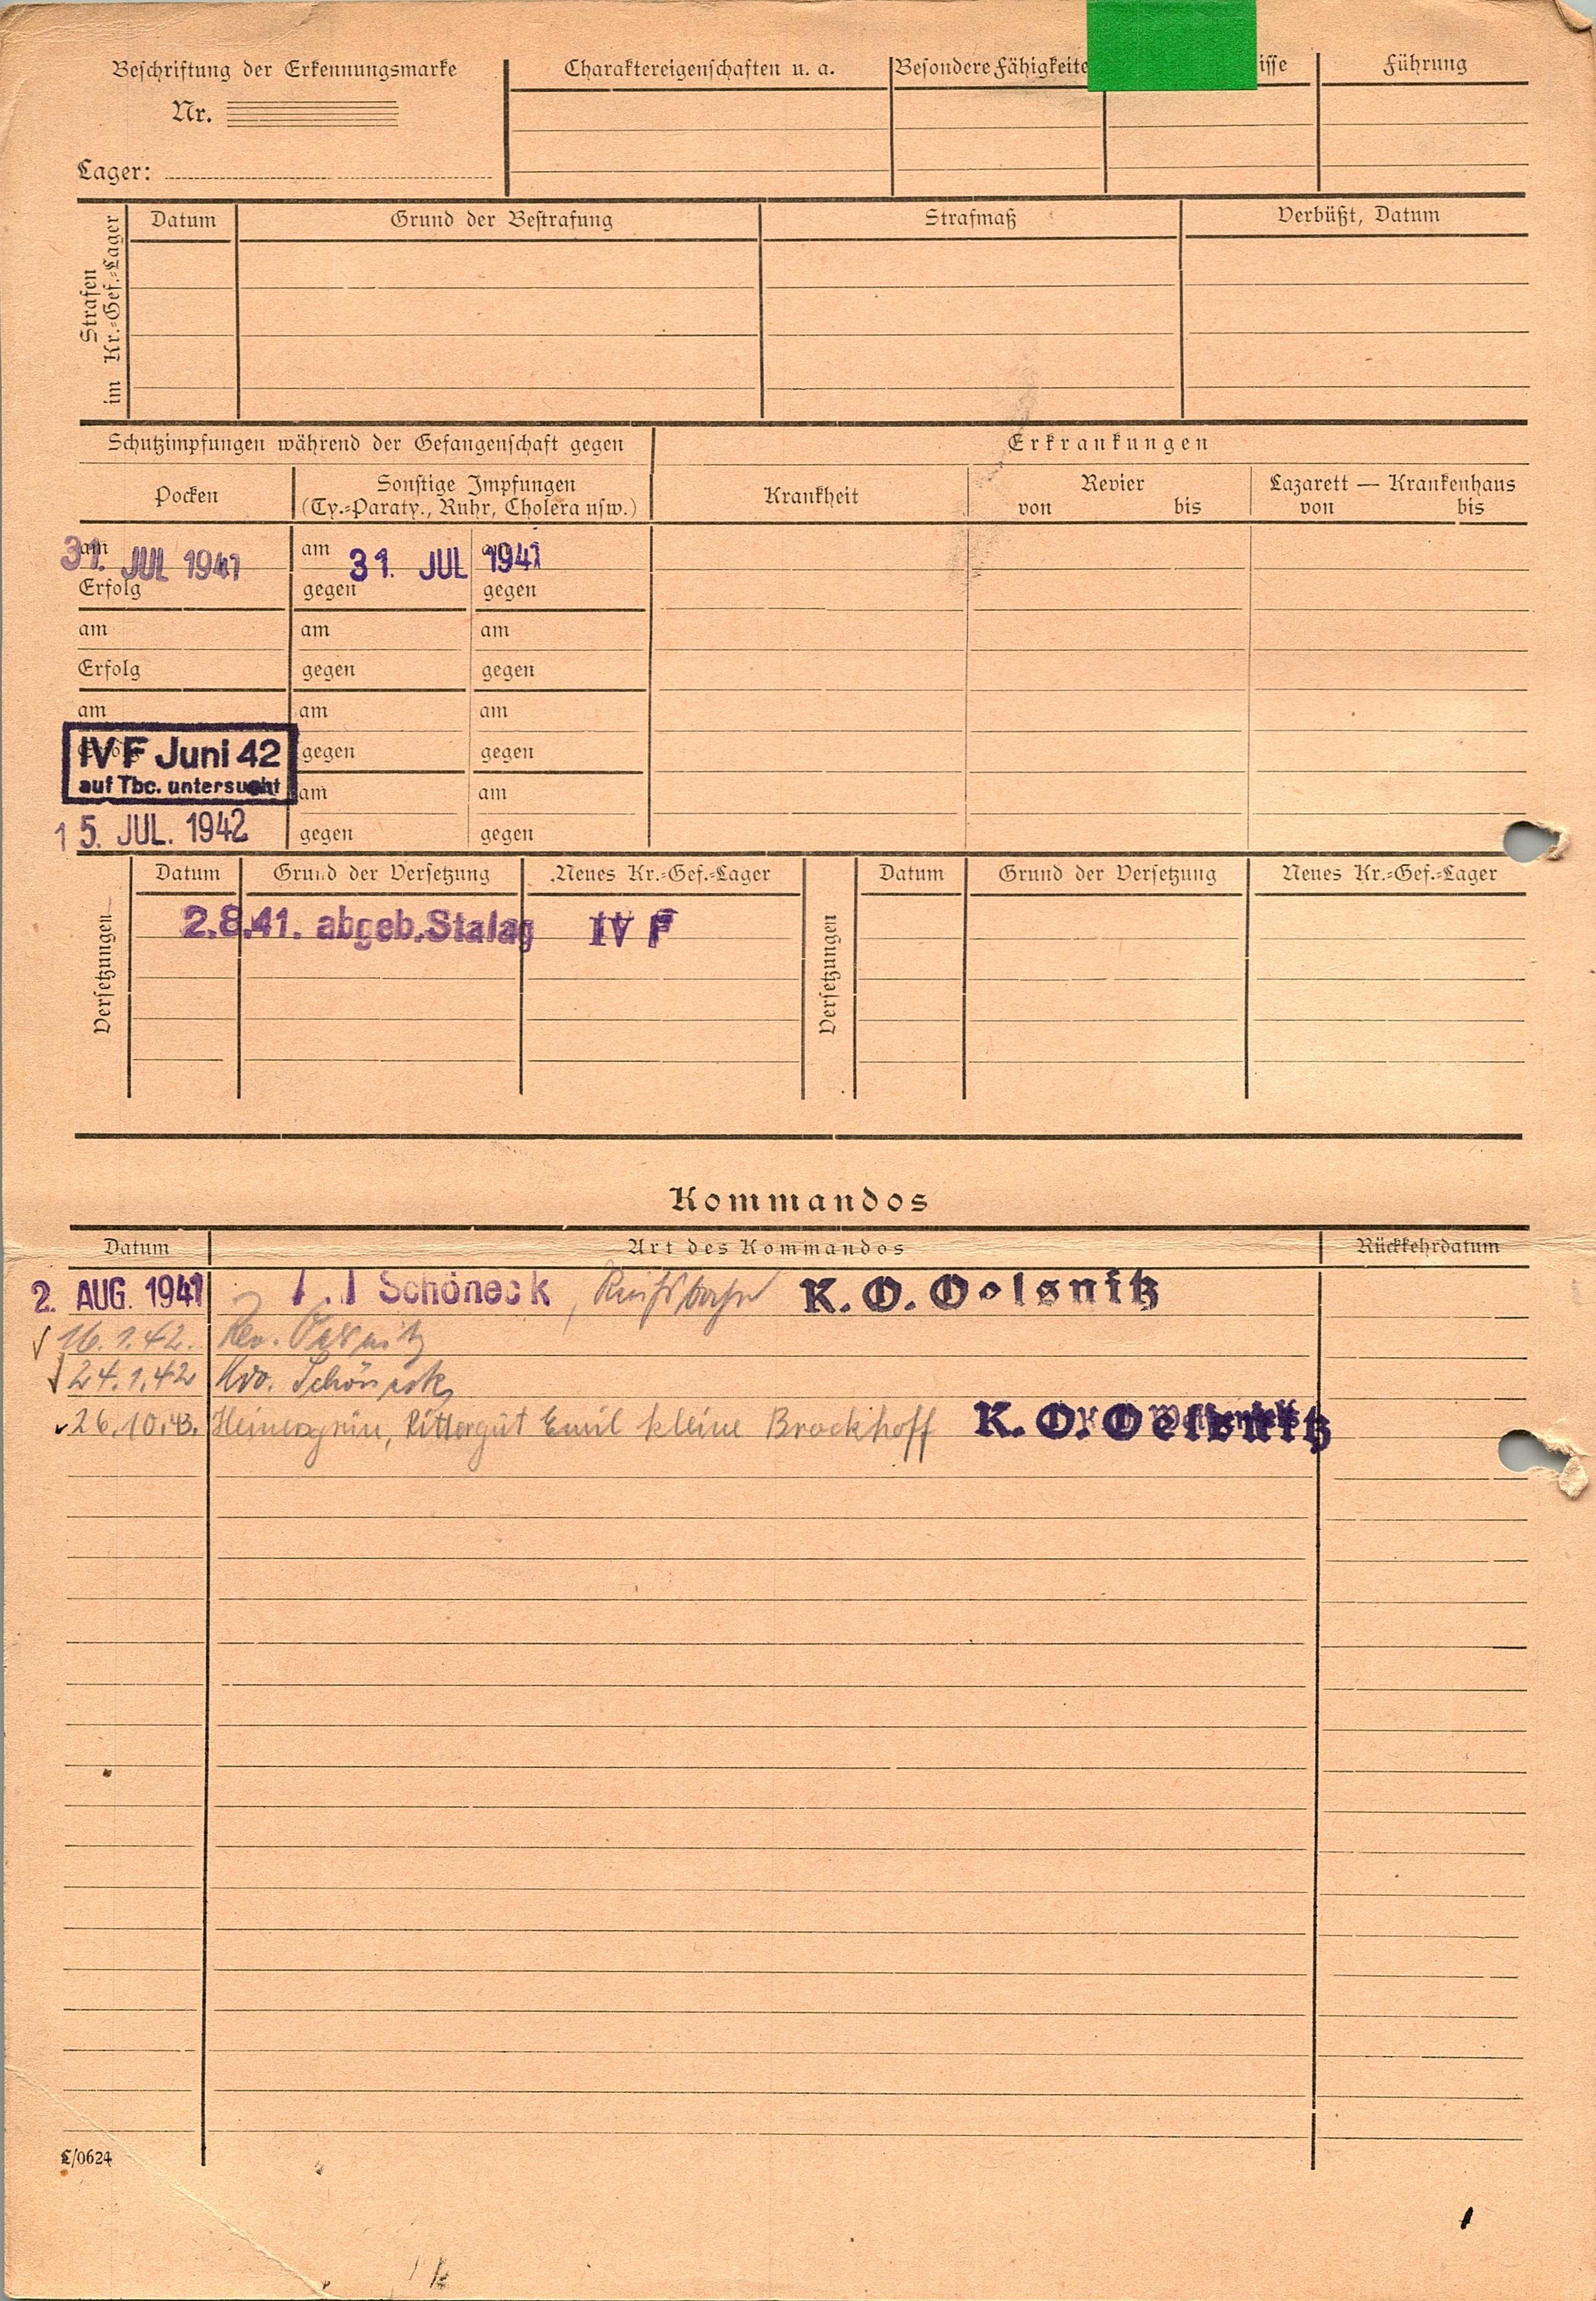 Beschriftung der Erkennungsmarke
Nr.
Lager:
Charaktereigenschaften u. a.
Besondere Fähigkeite
isse
Führung
Strafen im Kr.=Gef.=Lager
Datum
Grund der Bestrafung
Strafmaß
Verbüßt, Datum
Schutzimpfungen während der Gefangenschaft gegen
Erkrankungen
Pocken
Sonstige Impfungen
(Ty.=Paraty., Ruhr, Cholera usw.)
Krankheit
Revier
von bis
Lazarett — Krankenhaus
von bis
am 31. JUL 1941 am 31. JUL am 1941
Erfolg gegen gegen
am am am
Erfolg gegen gegen
am am am
IV F Juni 42 gegen gegen
auf Tbc. untersucht am am
15. JUL. 1942 gegen gegen
Versetzungen
Datum Grund der Versetzung Neues Kr.=Gef.=Lager
2.8.41. abgeb. Stalag IV F
Versetzungen
Datum Grund der Versetzung Neues Kr.=Gef.=Lager
Kommandos
Datum Art des Kommandos Rückkehrdatum
2. AUG. 1941 Schöneck, K. O. Oelsnitz
16.1.42. Rev. Oelsnitz
24.1.42 Kdo. Schöneck
26.10.43. Heinersgrün, Rittergut Emil kleine Brockhoff K. O. Oelsnitz
L/0624